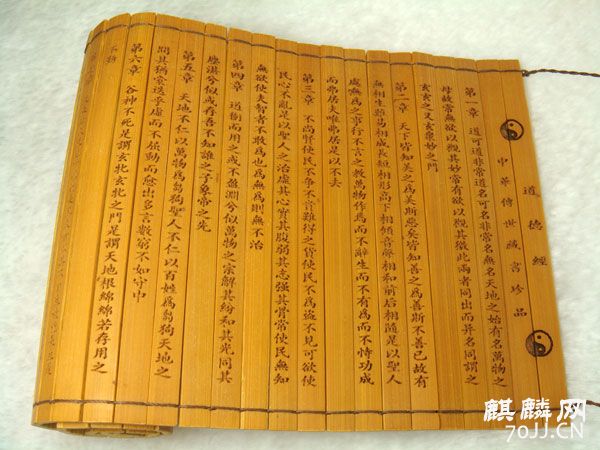 道德經
中華傳世藏書珍品
第一章 道可道非常道名可名非常名無名天地之始有名萬物之
母故常無欲以觀其妙常有欲以觀其徼此兩者同出而异名同謂之
玄玄之又玄衆妙之門
第二章 天下皆知美之為美斯惡矣皆知善之為善斯不善已故有
無相生難易相成長短相形高下相傾音聲相和前后相隨是以聖人
處無為之事行不言之教萬物作焉而不辭生而不有為而不恃功成
而弗居夫唯弗居是以不去
第三章 不尚賢使民不争不貴難得之貨使民不為盗不見可欲使
民心不亂是以聖人之治虛其心實其腹弱其志强其骨常使民無知
無欲使夫智者不敢為也為無為則無不治
第四章 道冲而用之或不盈淵兮似萬物之宗解其紛和其光同其
塵湛兮似或存吾不知誰之子象帝之先
第五章 天地不仁以萬物為芻狗聖人不仁以百姓為芻狗天地之
間其猶橐乎虛而不屈動而愈出多言數窮不如守中
第六章 谷神不死是謂玄牝玄牝之門是謂天地根綿綿若存用之
不勤
麒麟网
70JJ.CN